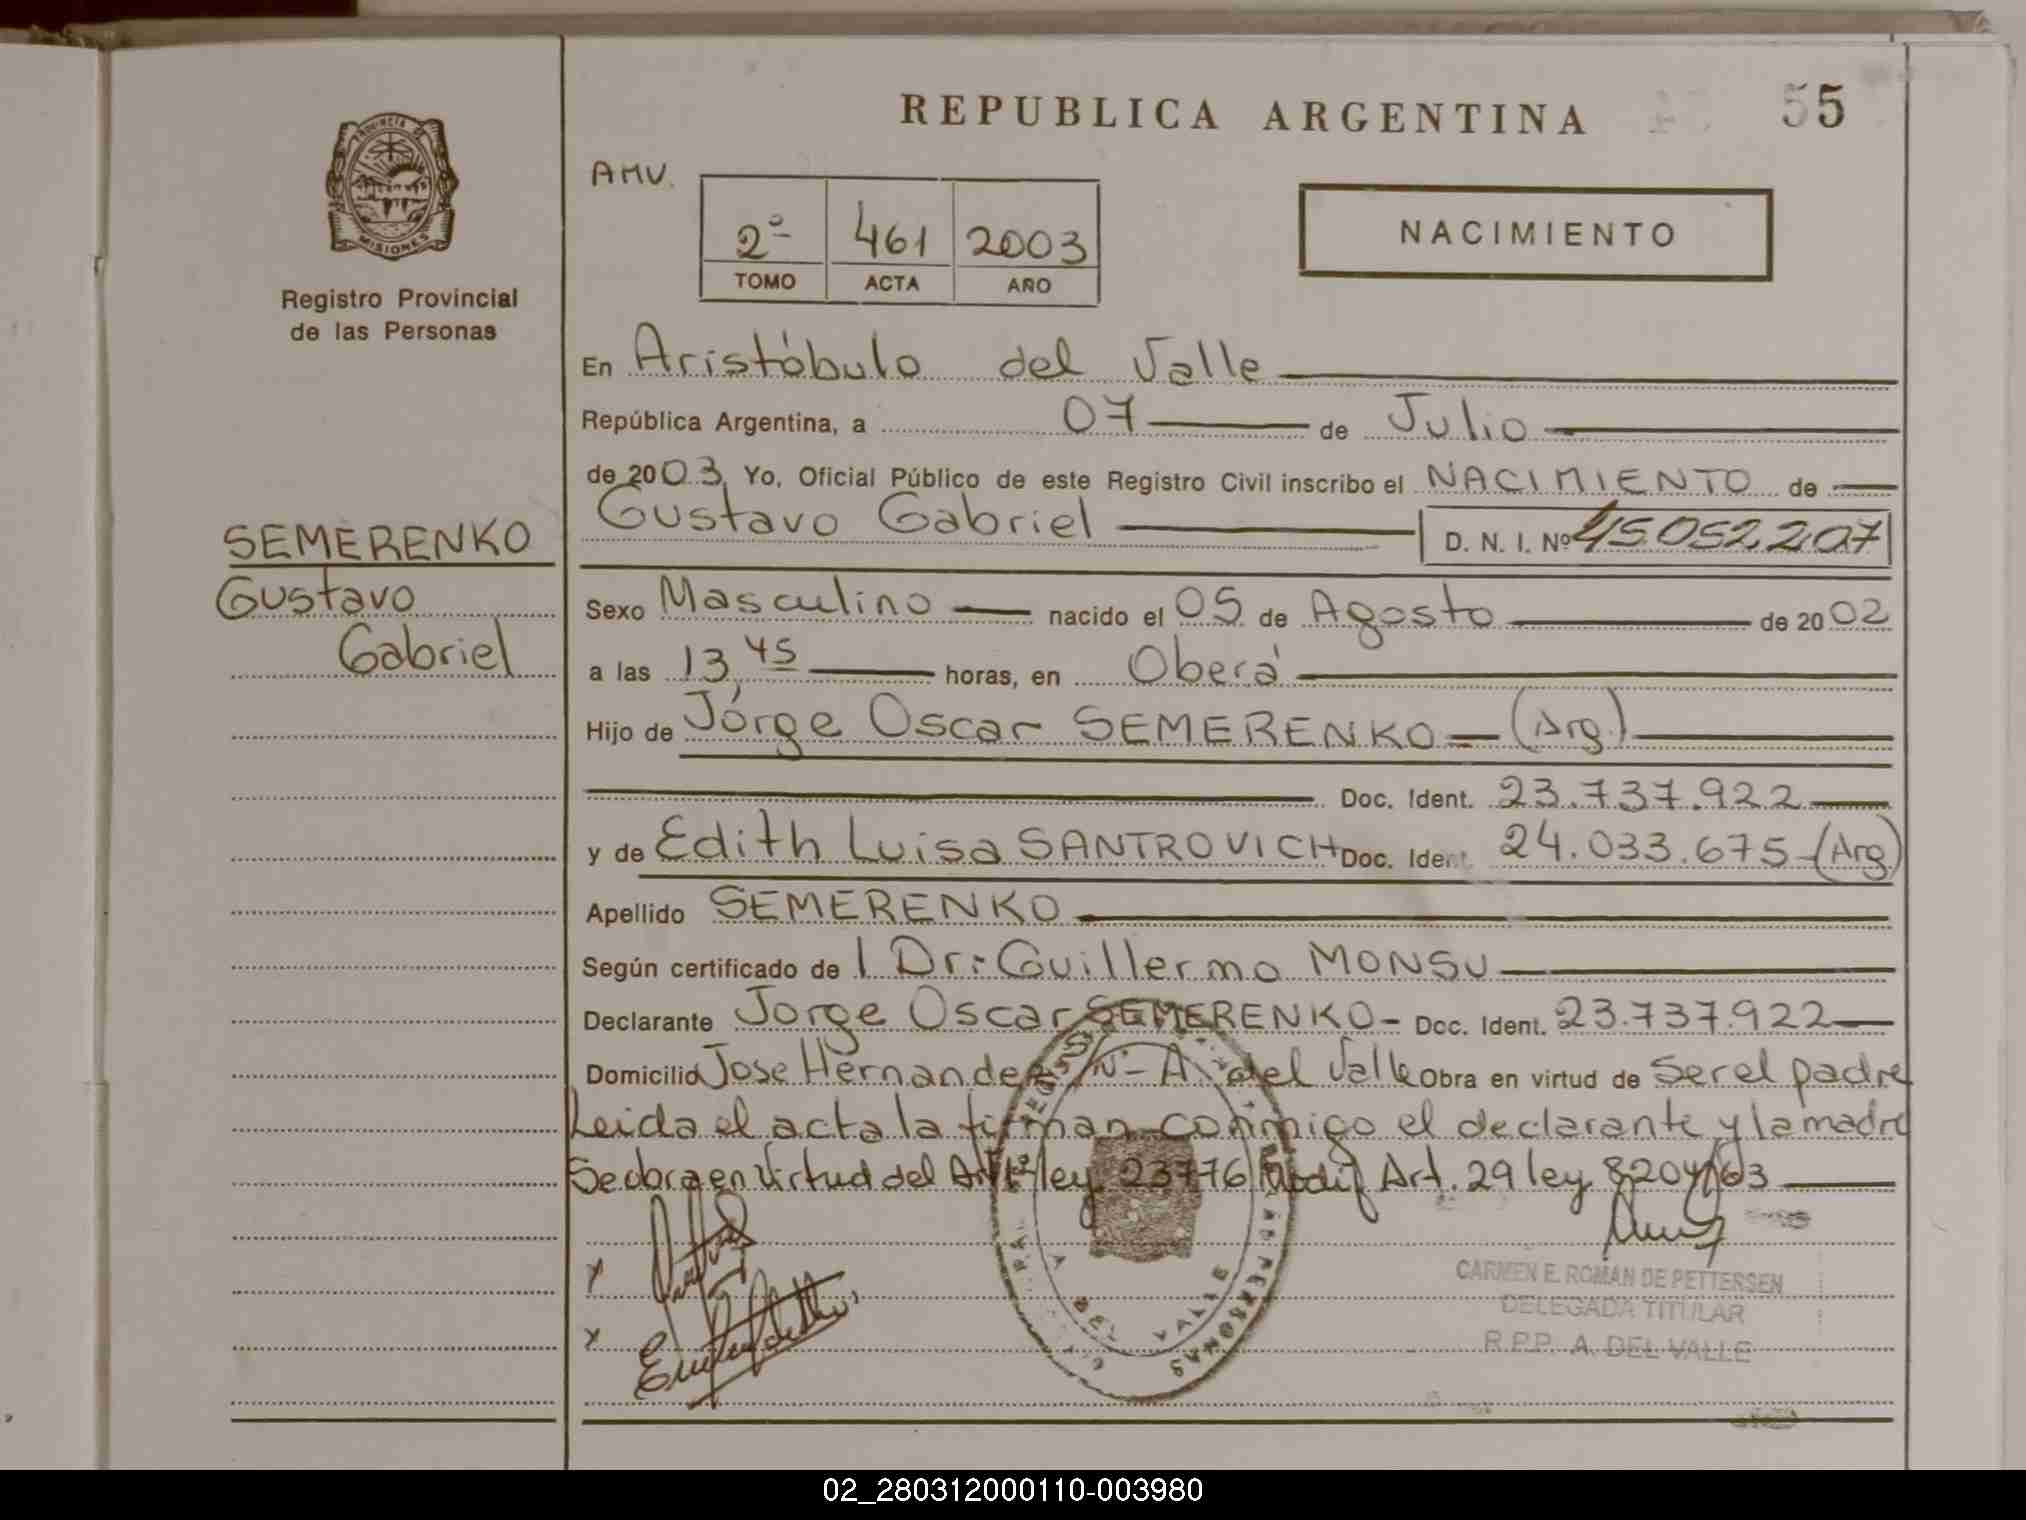 REPUBLICA ARGENTINA
55
PROVINCIA DE
MISIONES
Registro Provincial
de las Personas
AMV.
2º 461 2003
TOMO ACTA AÑO
NACIMIENTO
En Aristóbulo del Valle
República Argentina, a 07 de Julio
de 2003 Yo, Oficial Público de este Registro Civil inscribo el NACIMIENTO de
Gustavo Gabriel D. N. I. Nº 45.052.207
SEMERENKO
Gustavo
Gabriel
Sexo Masculino nacido el 05 de Agosto de 2002
a las 13,45 horas, en Oberá
Hijo de Jorge Oscar SEMERENKO (Arg.)
Doc. Ident. 23.737.922
y de Edith Luisa SANTROVICH Doc. Ident. 24.033.675 (Arg)
Apellido SEMERENKO
Según certificado de l Dr: Guillermo MONSU
Declarante Jorge Oscar SEMERENKO- Doc. Ident. 23.737.922
Domicilio Jose Hernandez S/Nº- A. del Valle Obra en virtud de ser el padre
Leida el acta la firman conmigo el declarante y la madre
Se obra en virtud del Art 1º ley 23776 Modif Art. 29 ley 8204/63
x
x
A DEL VALLE
PERSONAS
CARMEN E. ROMAN DE PETTERSEN
DELEGADA TITULAR
R.P.P. A. DEL VALLE
02_280312000110-003980